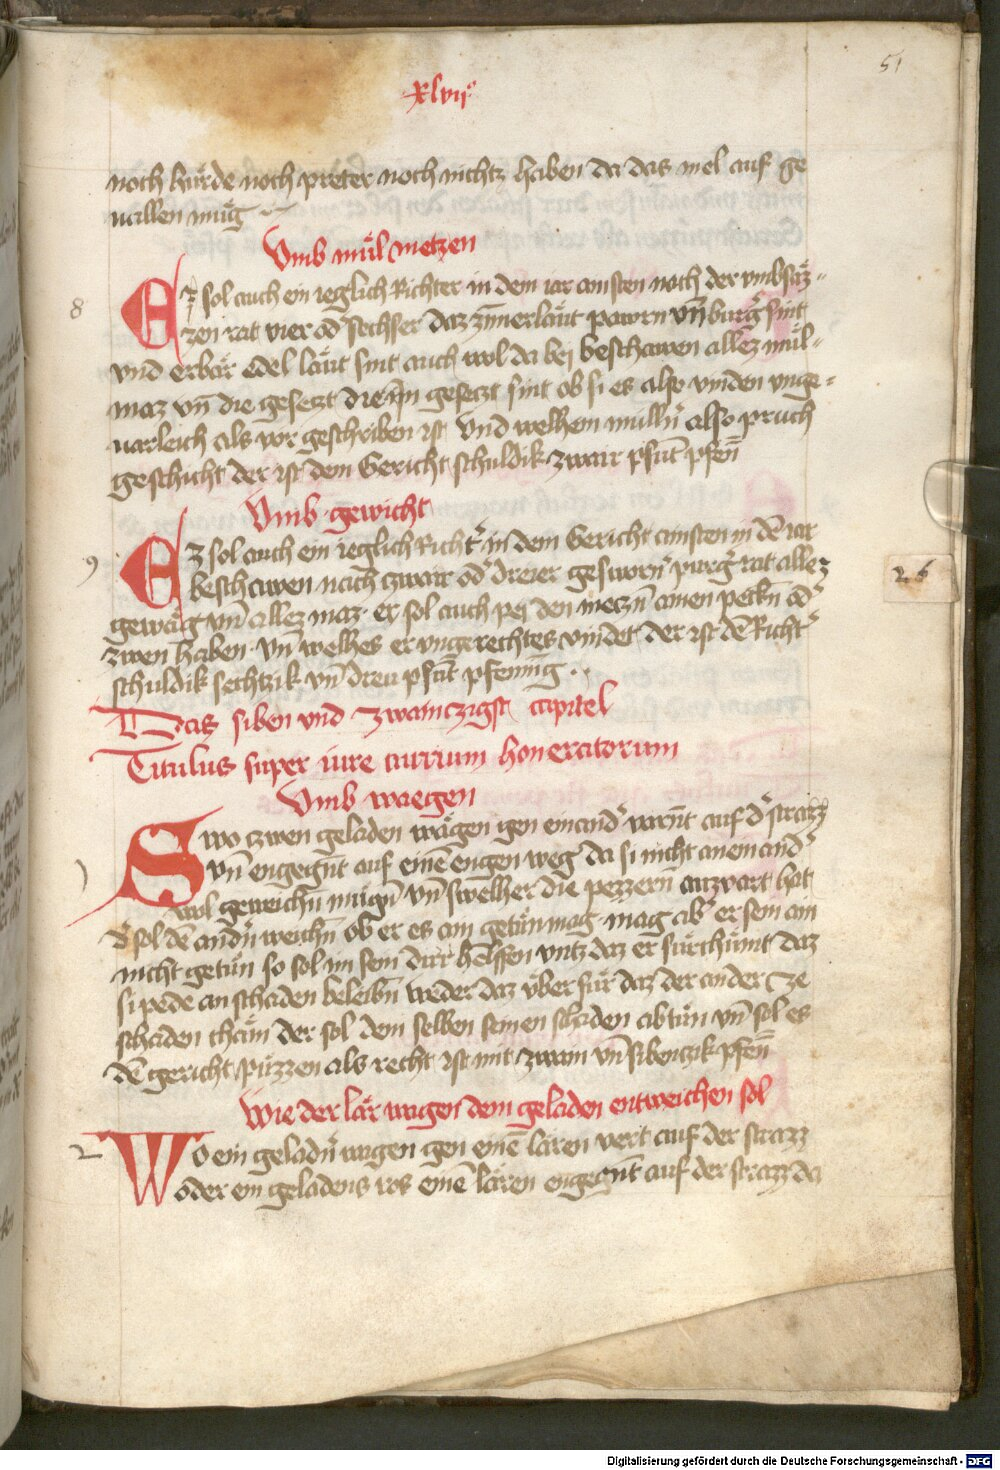 51
xlvii°
noch hürde noch preter noch nichtz haben da das mel auf ge
uallen müg
Vmb mül metzen
8
Ez sol auch ein ieglich Richter in dem iar ainsten nach der vmbsäz¬
zen rat vier od̓ sechser daz zimerläut pawrn vn̄ burg̓ sint
vnd erbär edel läut sint auch wol da bei beschawen allez mül¬
maz vn̄ die gesetzt die im gesetzt sint ob si es also vinden vnge¬
uarleich als vor geschriben ist Vnd welhem mulln̓ also pruch
geschicht der ist dem Gericht schuldik zwair pfūt pfēn̄
Vmb gewicht
9
Ez sol auch ein ieglich Richt̓ in dem Gericht ainsten in dē iar
beschawen nach zwair od̓ dreier gesworn̓ purg̓ rat allez
gewäg vn̄ allez maz. er sol auch pei den metzn̄ ainen pekn̄ od̓
zwen haben. vn̄ welhes er vngerechtes vindet der ist dē Richt̓
schuldik sechtzik vn̄ dreu pfūt pfening
26
Das siben vnd zwainczigst capitel
Titulus super iure curruum honeratorum
Vmb waegen
1
Swo zwen geladen wägen gen einand̓ varn̄t auf d̓ strazz
vn̄ engegn̄t auf einē engen weg da si nicht an einand̓
wol geweichn̄ mügn̄ vn̄ swelher die pezzern̄ anzvart hat
d̓ sol dē andn̓ weichn̄ ob er es ain getün mag. mag ab̓ er sein ain
nicht getün so sol im sein dirr helffen vntz daz er fürchümt daz
si pede an schaden beleibn̄ weder daz vber für daz der ander ze
schaden chäm der sol dem selben seinen schaden abtün vn̄ sol es
dē gericht püzzen als recht ist mit zwain vn̄ sibenczik pfēn̄
Wie der lär wagen dem geladen entweichen sol
2
Wo ein geladn̓ wagen gen einē lären vert auf der strazz
oder ein geladens ros einē lären engegn̄t auf der strazz da
Digitalisierung gefördert durch die Deutsche Forschungsgemeinschaft - DFG